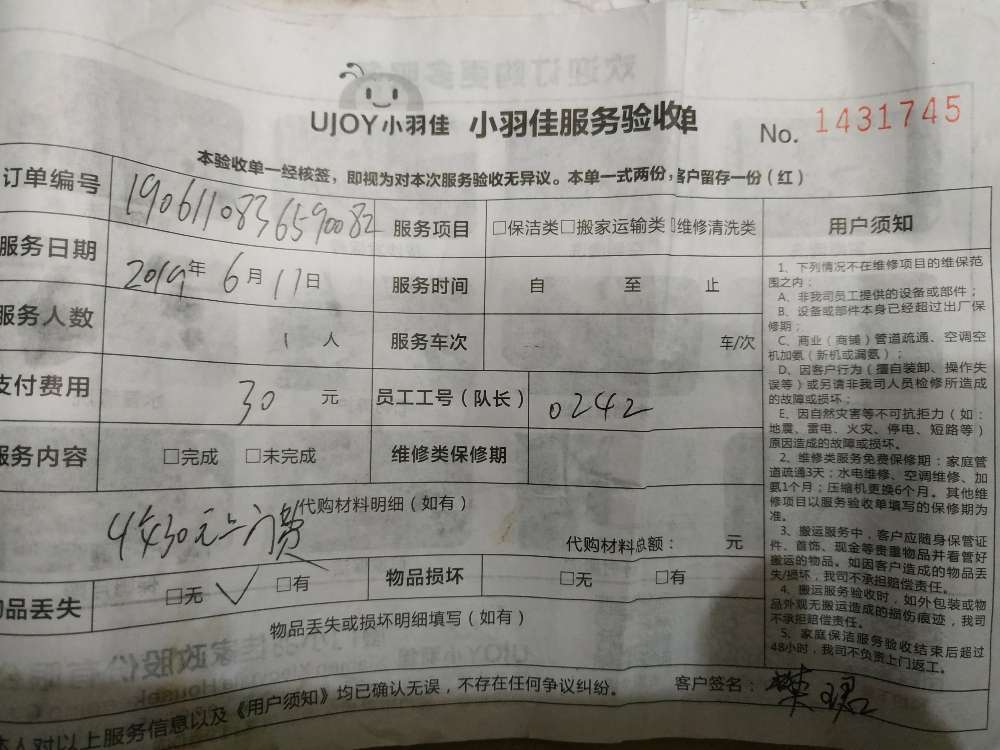 UJOY小羽佳 小羽佳服务验收单 No. 1431745
本验收单一经核签，即视为对本次服务验收无异议。本单一式两份，客户留存一份（红）
订单编号 1906110836590082 服务项目 □保洁类□搬家运输类□维修清洗类
服务日期 2019年6月11日 服务时间 自 至 止
服务人数 1 人 服务车次 车/次
支付费用 30 元 员工工号（队长） 0242
服务内容 □完成 □未完成 维修类保修期
代购材料明细（如有）
30元上门费
代购材料总额： 元
物品丢失 □无 √ □有 物品损坏 □无 □有
物品丢失或损坏明细填写（如有）
本人对以上服务信息以及《用户须知》均已确认无误，不存在任何争议纠纷。 客户签名：
用户须知
1、下列情况不在维修项目的维保范
围之内：
A、非我司员工提供的设备或部件；
B、设备或部件本身已经超过出厂保
修期；
C、商业（商铺）管道疏通、空调空
机加氨（新机或漏氨）；
D、因客户行为（擅自装卸、操作失
误等）或另请非我司人员检修所造成
的故障或损坏；
E、因自然灾害等不可抗拒力（如：
地震、雷电、火灾、停电、短路等）
原因造成的故障或损坏。
2、维修类服务免费保修期：家庭管
道疏通3天；水电维修、空调维修、加
氨1个月；压缩机更换6个月。其他维
修项目以服务验收单填写的保修期为
准。
3、搬运服务中，客户应随身保管证
件、首饰、现金等贵重物品并看管好
搬运的物品。如因客户造成的物品丢
失/损坏，我司不承担赔偿责任。
4、搬运服务验收时，如外包装或物
品外观无搬运造成的损伤痕迹，我司
不承担赔偿责任。
5、家庭保洁服务验收结束后超过
48小时，我司不负责上门返工。